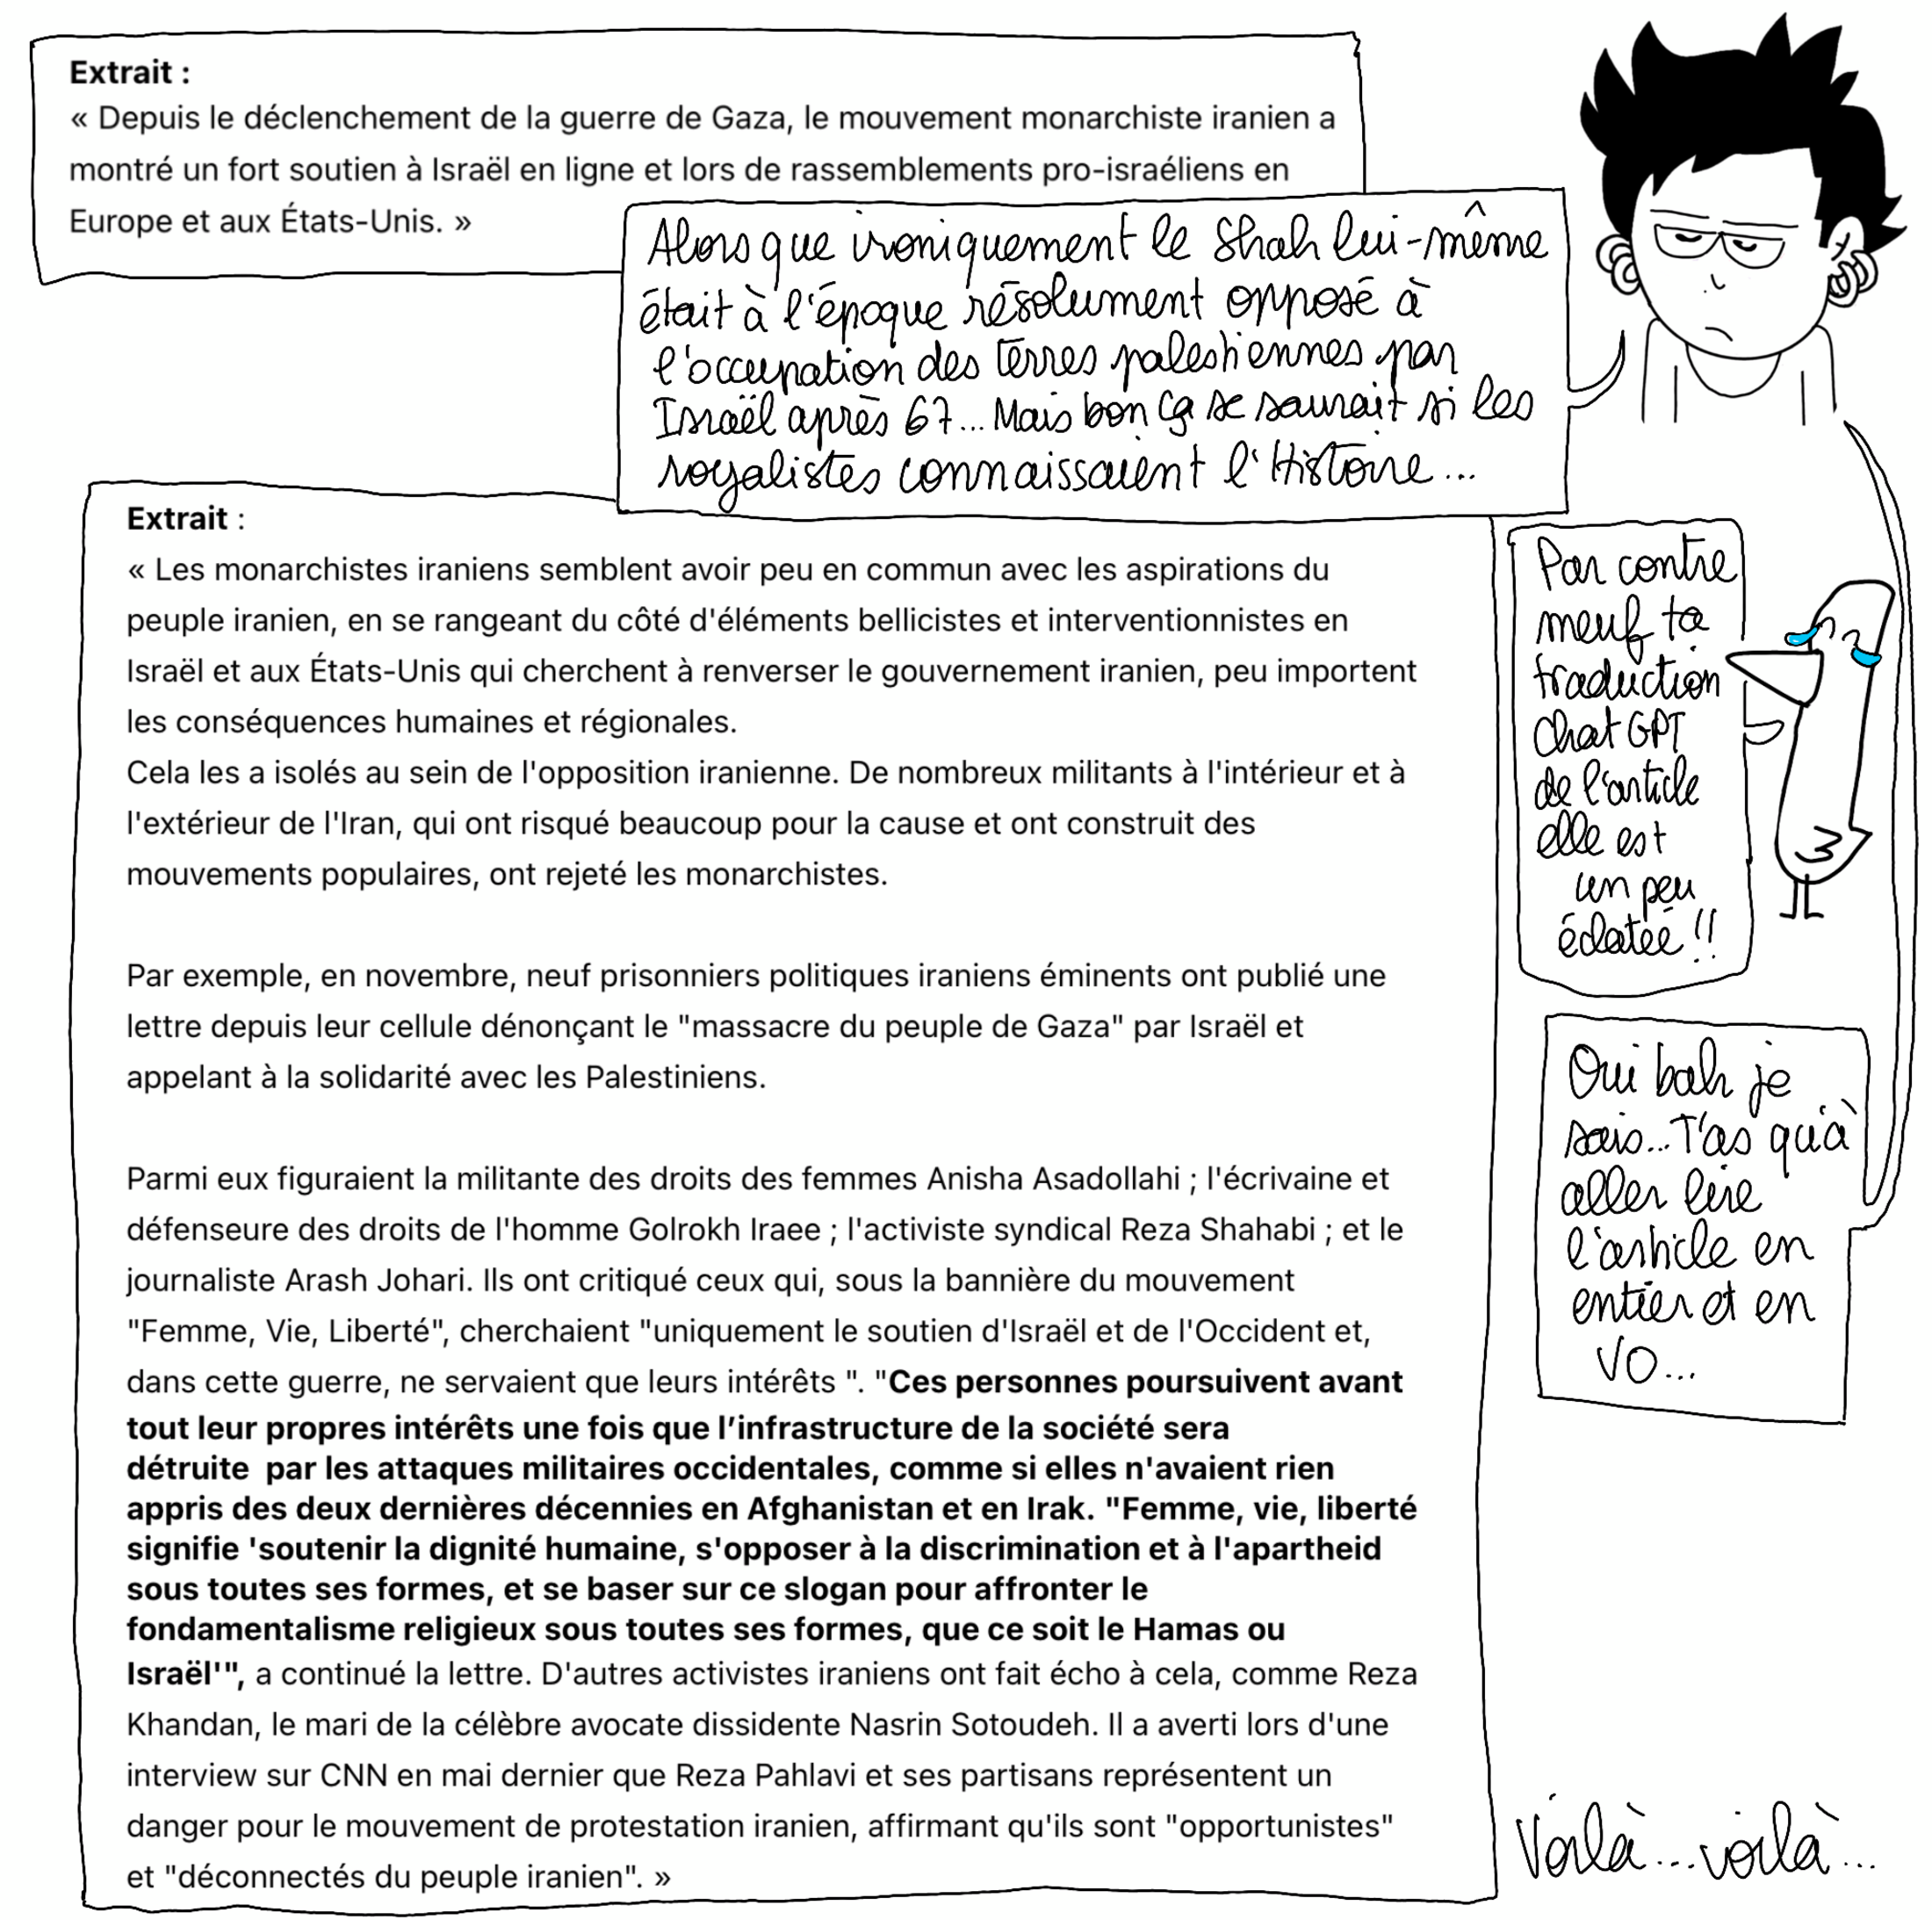 Extrait :
« Depuis le déclenchement de la guerre de Gaza, le mouvement monarchiste iranien a
montré un fort soutien à Israël en ligne et lors de rassemblements pro-israéliens en
Europe et aux États-Unis. »
Alors que ironiquement le Shah lui-même
était à l'époque résolument opposé à
l'occupation des terres palestiennes par
Israël après 67... Mais bon ça se saurait si les
royalistes connaissaient l'Histoire...
Extrait :
« Les monarchistes iraniens semblent avoir peu en commun avec les aspirations du
peuple iranien, en se rangeant du côté d'éléments bellicistes et interventionnistes en
Israël et aux États-Unis qui cherchent à renverser le gouvernement iranien, peu importent
les conséquences humaines et régionales.
Cela les a isolés au sein de l'opposition iranienne. De nombreux militants à l'intérieur et à
l'extérieur de l'Iran, qui ont risqué beaucoup pour la cause et ont construit des
mouvements populaires, ont rejeté les monarchistes.
Par exemple, en novembre, neuf prisonniers politiques iraniens éminents ont publié une
lettre depuis leur cellule dénonçant le "massacre du peuple de Gaza" par Israël et
appelant à la solidarité avec les Palestiniens.
Parmi eux figuraient la militante des droits des femmes Anisha Asadollahi ; l'écrivaine et
défenseure des droits de l'homme Golrokh Iraee ; l'activiste syndical Reza Shahabi ; et le
journaliste Arash Johari. Ils ont critiqué ceux qui, sous la bannière du mouvement
"Femme, Vie, Liberté", cherchaient "uniquement le soutien d'Israël et de l'Occident et,
dans cette guerre, ne servaient que leurs intérêts ". "Ces personnes poursuivent avant
tout leur propres intérêts une fois que l’infrastructure de la société sera
détruite  par les attaques militaires occidentales, comme si elles n'avaient rien
appris des deux dernières décennies en Afghanistan et en Irak. "Femme, vie, liberté
signifie 'soutenir la dignité humaine, s'opposer à la discrimination et à l'apartheid
sous toutes ses formes, et se baser sur ce slogan pour affronter le
fondamentalisme religieux sous toutes ses formes, que ce soit le Hamas ou
Israël'", a continué la lettre. D'autres activistes iraniens ont fait écho à cela, comme Reza
Khandan, le mari de la célèbre avocate dissidente Nasrin Sotoudeh. Il a averti lors d'une
interview sur CNN en mai dernier que Reza Pahlavi et ses partisans représentent un
danger pour le mouvement de protestation iranien, affirmant qu'ils sont "opportunistes"
et "déconnectés du peuple iranien". »
Par contre
meuf ta
traduction
chat GPT
de l'article
elle est
un peu
éclatée !!
Oui bah je
sais... T'as qu'à
aller lire
l'article en
entier et en
VO...
Voilà... voilà...